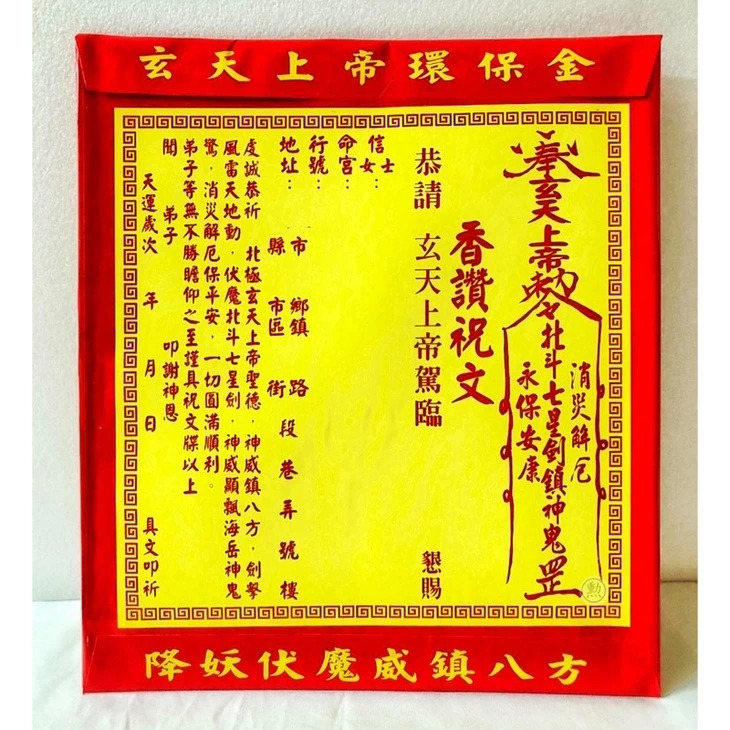 玄天上帝環保金
奉玄天上帝敕令北斗七星劍鎮神鬼罡
消災解厄
永保安康
勲
香讚祝文
恭請 玄天上帝駕臨 懇賜
信士女:
命宮:
行號:
地址: 市縣 鄉鎮市區 路街 段 巷 弄 號 樓
虔誠恭祈 北極玄天上帝聖德,神威鎮八方,劍擊
風雷天地動,伏魔北斗七星劍,神威顯飄海岳神鬼
驚,消災解厄保平安,一切圓滿順利。
弟子等無不勝瞻仰之至謹具祝文牒以上
聞 弟子 叩謝神恩
天運歲次 年 月 日 具文叩祈
降妖伏魔威鎮八方